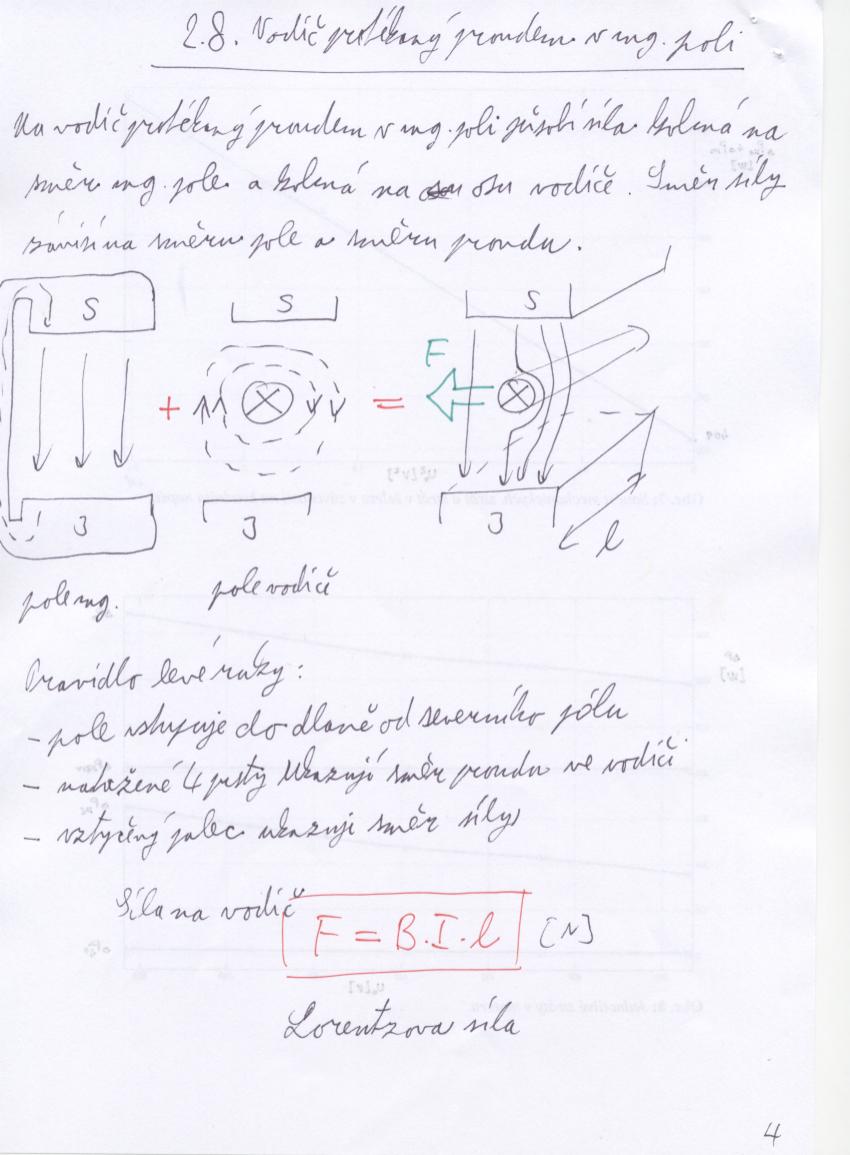 2.8. Vodič protékaný proudem v mg. poli
Na vodič protékaný proudem v mg. poli působí síla kolmá na
směr mg. pole a kolmá na osu vodiče. Směr síly
závisí na směru pole a směru proudu.
S
S
S
F
+
=
J
J
J
l
pole mg.
pole vodič
Pravidlo levé ruky:
- pole vstupuje do dlaně od severního pólu
- natažené 4 prsty ukazují směr proudu ve vodiči
- vztyčený palec ukazuje směr síly
Síla na vodič
F = B.I.l [N]
Lorentzova síla
4